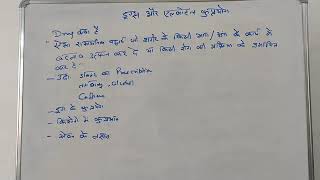 ड्रग्स और एल्कोहल कुप्रयोग
Drug क्या है
ऐसा रासायनिक पदार्थ जो शरीर के किसी अंग / अंग के कार्य में
उत्पन्न कर दे या किसी रोग की प्रक्रिया को प्रभावित
कर दे -
- उदा. Prescribtion
Alcohol
Caffeine
- ड्रग के कुप्रयोग
- किशोरों में कुप्रभाव
- सेवन के लक्षण